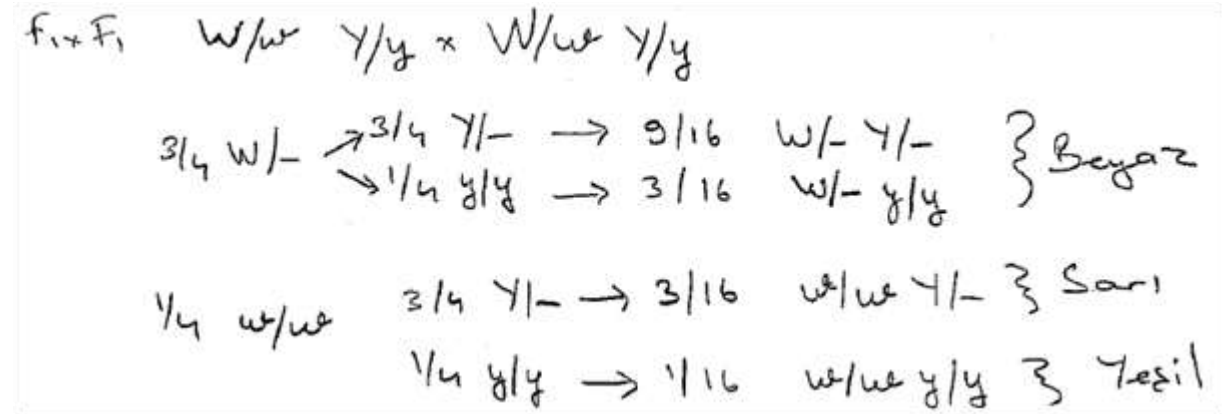 F₁ x F₁ W/w Y/y x W/w Y/y
3/4 W/- ↗ 3/4 Y/- → 9/16 W/- Y/- } Beyaz
↘ 1/4 y/y → 3/16 W/- y/y
1/4 w/w 3/4 Y/- → 3/16 w/w Y/- } Sarı
1/4 y/y → 1/16 w/w y/y } Yeşil